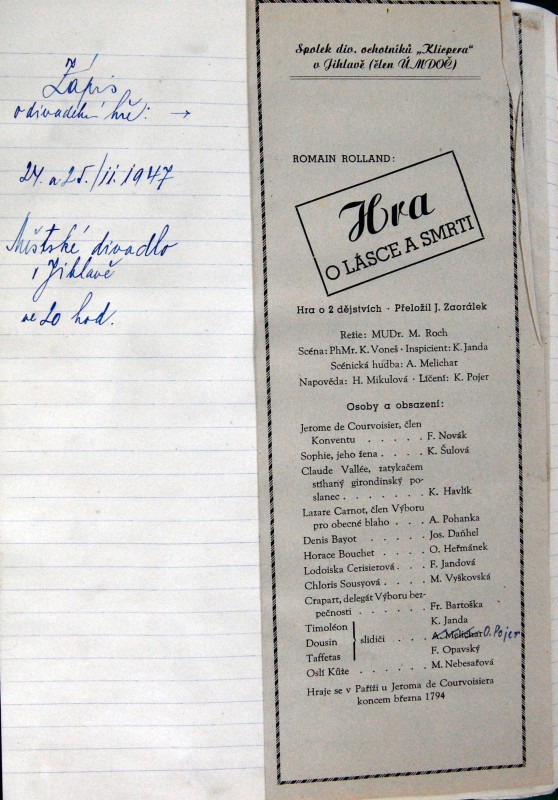 Zápis
o divadelní hře: →
24. a 25./II. 1947
Městské divadlo
v Jihlavě
ve 20 hod.
Spolek div. ochotníků „Klicpera“
v Jihlavě (člen ÚMDOČ)
ROMAIN ROLLAND:
Hra
O LÁSCE A SMRTI
Hra o 2 dějstvích · Přeložil J. Zaorálek
Režie: MUDr. M. Roch
Scéna: PhMr. K. Voneš · Inspicient: K. Janda
Scénická hudba: A. Melichar
Napověda: H. Mikulová · Líčení: K. Pojer
Osoby a obsazení:
Jerome de Courvoisier, člen
Konventu . . . . . F. Novák
Sophie, jeho žena . . . . K. Šulová
Claude Vallée, zatykačem
stíhaný girondinský po-
slanec . . . . . . . K. Havlík
Lazare Carnot, člen Výboru
pro obecné blaho . . . A. Pohanka
Denis Bayot . . . . . Jos. Daňhel
Horace Bouchet . . . . O. Heřmánek
Lodoiska Cerisierová . . . F. Jandová
Chloris Sousyová . . . . M. Vyškovská
Crapart, delegát Výboru bez-
pečnosti . . . . . . Fr. Bartoška
Timoléon K. Janda
Dousin slidiči . . . A. Melichar O. Pojer
Taffetas F. Opavský
Oslí Kůže . . . . . . M. Nebesařová
Hraje se v Paříži u Jeroma de Courvoisiera
koncem března 1794